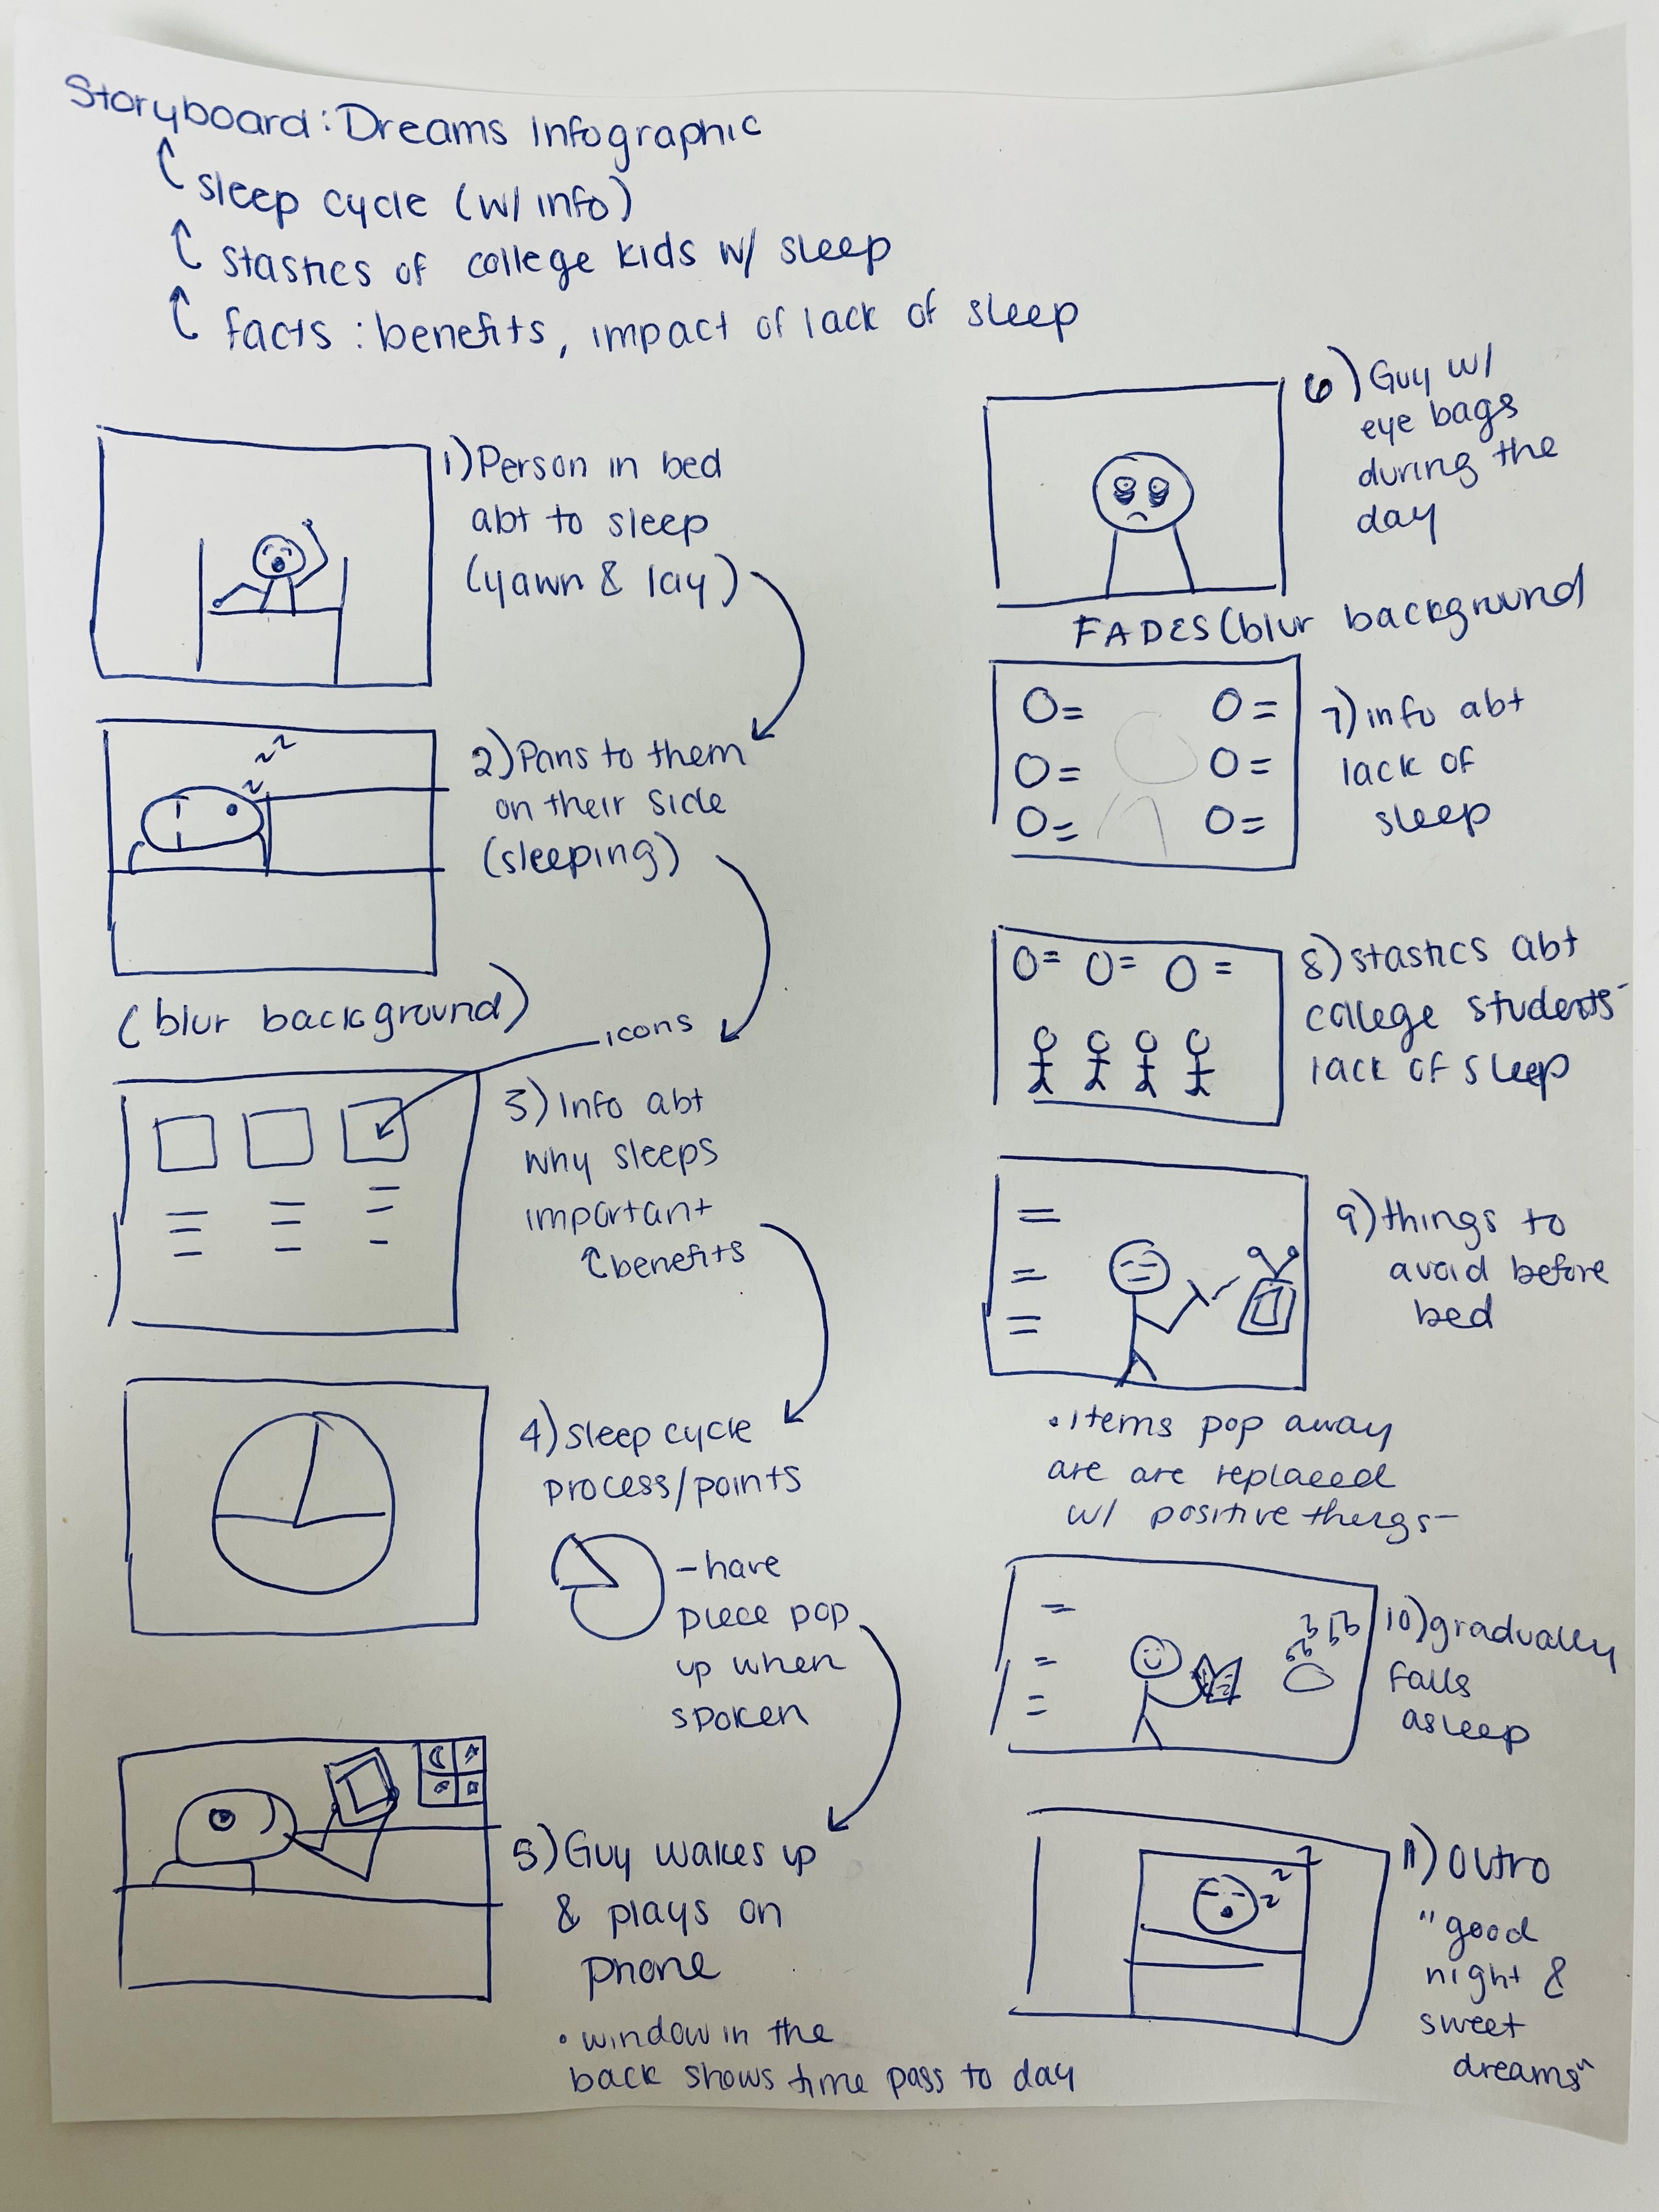 Storyboard: Dreams Infographic
sleep cycle (w/ info)
stastics of college kids w/ sleep
facts : benefits, impact of lack of sleep
1) Person in bed
abt to sleep
(yawn & lay)
2) Pans to them
on their side
(sleeping)
z z z
(blur background)
icons
3) Info abt
why sleeps
important
benefits
4) sleep cycle
process/points
- have
piece pop
up when
spoken
5) Guy wakes up
& plays on
phone
• window in the
back shows time pass to day
6) Guy w/
eye bags
during the
day
FADES (blur background
7) info abt
lack of
sleep
8) stastics abt
college students
lack of sleep
9) things to
avoid before
bed
• items pop away
are are replaced
w/ positive things-
10) gradually
falls
asleep
11) outro
"good
night &
sweet
dreams"
z z z